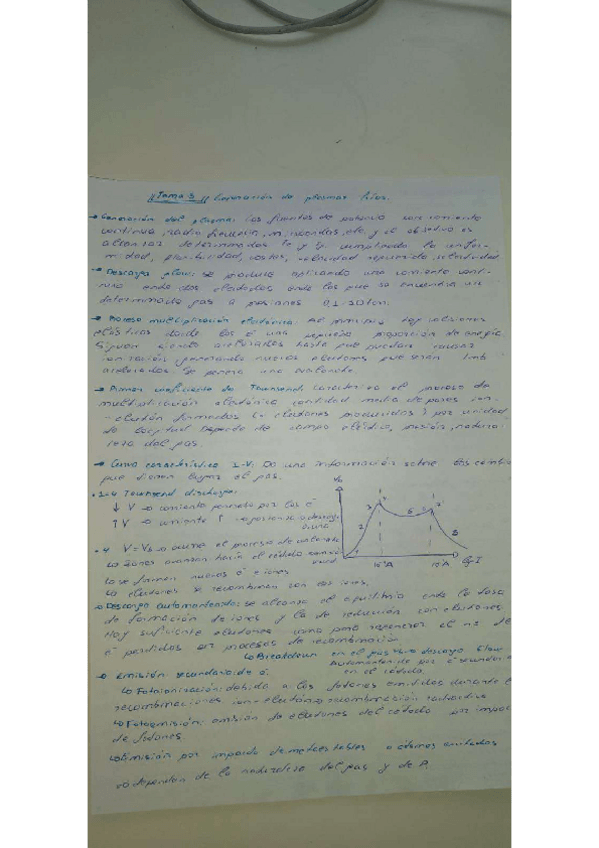 // Tema 3 // Generación de plasmas fríos.
→ Generación del plasma: las fuentes de potencia son corriente
continua, radio frecuencia, microondas, etc y el objetivo es
alcanzar determinados Te y cumpliendo la unifor-
midad, fiabilidad, costes, velocidad selectividad.
→ Descarga glow: se produce aplicando una corriente conti-
nua entre dos electrodos entre los que se encuentra un
determinado gas a presiones 0,1-10 torr.
→ Proceso multiplicación electrónica: Al principio hay colisiones
elásticas donde los é una pequeña proporción de energía.
Siguen siendo acelerados hasta que puedan causar
ionización generando nuevos electrones que serán
acelerados. Se genera una avalancha.
→ Primer coeficiente de Townsend: Caracteriza el proceso de
multiplicación electrónica cantidad media de pares ion-
-electrón formados (= electrones producidos) por unidad
de longitud. Depende de campo eléctrico, presión, natura-
leza del gas.
→ Curva característica I-V: Da una información sobre los cambios
que tienen lugar el gas.
Townsend discharge:
↓ V → corriente por los é
↑ V → corriente ↑ → descarga
V = Vb → ocurre el proceso de avalancha
↳ Iones avanzan hacia el cátodo
↳ se forman nuevos é e iones
↳ electrones se recombinan con los iones.
10 A
log I
→ Descarga automantenida: se alcanza el equilibrio entre la tasa
de formación de iones y la de reducción con electrones
Hay suficiente electrones como para regenerar el nº de
é perdidos en procesos de recombinación
↳ Breakdown en el gas descarga Glow
Automantenida por é secundarios
en el cátodo.
→ Emisión secundaria de é:
↳ Fotoionización: debido a los fotones emitidos durante
recombinaciones ion-electrón → recombinación radiactiva
↳ Fotoemisión: emisión de electrones del cátodo por impacto
de fotones
↳ Emisión por impacto de metaestables o átomos excitados
↳ dependen de la naturaleza del gas y de P.